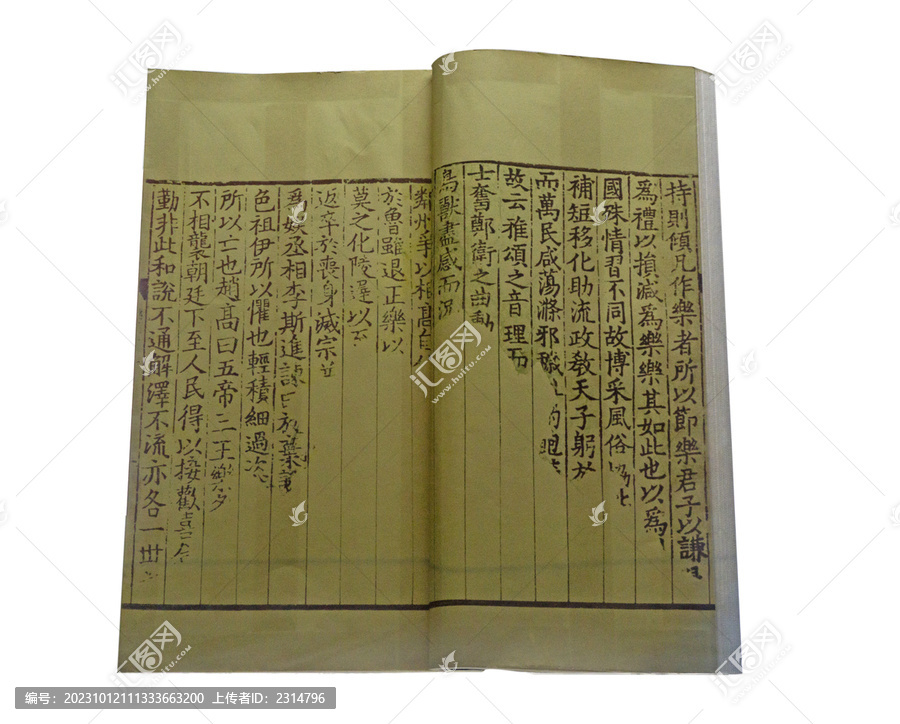 持則傾凡作樂者所以節樂君子以謙
爲禮以損減爲樂樂其如此也以爲
國殊情習不同故博采風俗協比
補短移化助流政敎天子躬於
而萬民咸蕩滌邪穢
故云雅頌之音理而
士奮鄭衛之曲動
鳥獸盡感而況
鄰州爭以相高自
於魯雖退正樂以
莫之化陵遲以至
返卒於喪身滅宗並
丞相李斯進諫曰放棄詩
色祖伊所以懼也輕積細過
所以亡也趙高曰五帝三王樂
不相襲朝廷下至人民得以接歡喜合
勤非此和說不通解澤不流亦各一世
编号:20231012111333663200 上传者ID:2314796
汇图网
www.huitu.com